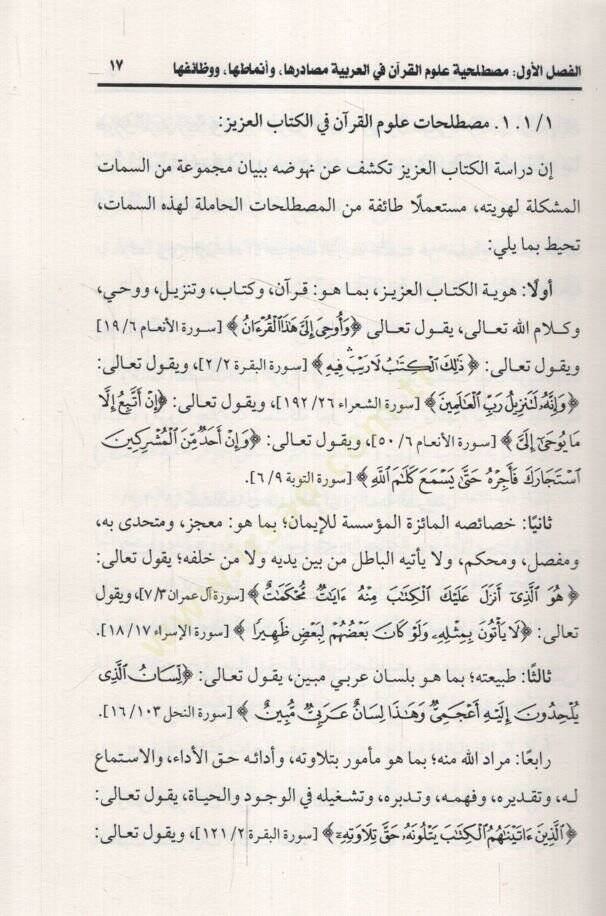 الفصل الأول: مصطلحية علوم القرآن في العربية مصادرها، وأنماطها، ووظائفها ١٧
١/١.١. مصطلحات علوم القرآن في الكتاب العزيز:
إن دراسة الكتاب العزيز تكشف عن نهوضه ببيان مجموعة من السمات
المشكلة لهويته، مستعملًا طائفة من المصطلحات الحاملة لهذه السمات،
تحيط بما يلي:
أولًا: هوية الكتاب العزيز، بما هو: قرآن، وكتاب، وتنزيل، ووحي،
وكلام الله تعالى، يقول تعالى ﴿وَأُوحِيَ إِلَيَّ هَٰذَا ٱلْقُرْءَانُ﴾ [سورة الأنعام ١٩/٦]
ويقول تعالى: ﴿ذَٰلِكَ ٱلْكِتَٰبُ لَا رَيْبَ ۛ فِيهِ﴾ [سورة البقرة ٢/٢]، ويقول تعالى:
﴿وَإِنَّهُۥ لَتَنزِيلُ رَبِّ ٱلْعَٰلَمِينَ﴾ [سورة الشعراء ١٩٢/٢٦]، ويقول تعالى: ﴿إِنْ أَتَّبِعُ إِلَّا
مَا يُوحَىٰٓ إِلَيَّ﴾ [سورة الأنعام ٥٠/٦]، ويقول تعالى: ﴿وَإِنْ أَحَدٌ مِّنَ ٱلْمُشْرِكِينَ
ٱسْتَجَارَكَ فَأَجِرْهُ حَتَّىٰ يَسْمَعَ كَلَٰمَ ٱللَّهِ﴾ [سورة التوبة ٦/٩].
ثانيًا: خصائصه المائزة المؤسسة للإيمان؛ بما هو: معجز، ومتحدى به،
ومفصل، ومحكم، ولا يأتيه الباطل من بين يديه ولا من خلفه؛ يقول تعالى:
﴿هُوَ ٱلَّذِىٓ أَنزَلَ عَلَيْكَ ٱلْكِتَٰبَ مِنْهُ ءَايَٰتٌ مُّحْكَمَٰتٌ﴾ [سورة آل عمران ٧/٣]، ويقول
تعالى: ﴿لَا يَأْتُونَ بِمِثْلِهِۦ وَلَوْ كَانَ بَعْضُهُمْ لِبَعْضٍ ظَهِيرًا﴾ [سورة الإسراء ١٨/١٧].
ثالثًا: طبيعته؛ بما هو بلسان عربي مبين، يقول تعالى: ﴿لِسَانُ ٱلَّذِى
يُلْحِدُونَ إِلَيْهِ أَعْجَمِىٌّ وَهَٰذَا لِسَانٌ عَرَبِىٌّ مُّبِينٌ﴾ [سورة النحل ١٦/١٠٣].
رابعًا: مراد الله منه؛ بما هو مأمور بتلاوته، وأدائه حق الأداء، والاستماع
له، وتقديره، وفهمه، وتدبره، وتشغيله في الوجود والحياة، يقول تعالى:
﴿ٱلَّذِينَ ءَاتَيْنَٰهُمُ ٱلْكِتَٰبَ يَتْلُونَهُۥ حَقَّ تِلَاوَتِهِۦٓ﴾ [سورة البقرة ١٢١/٢]، ويقول تعالى: